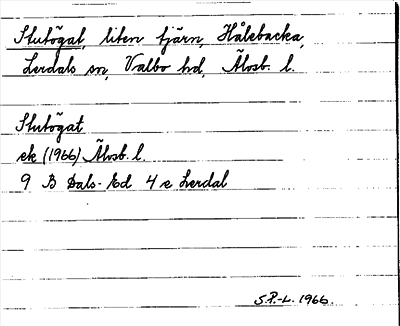 Stutögat, liten tjärn, Hålebacka,
Lerdals sn, Valbo hd, Älvsb. l.
Stutögat
ek (1966) Älvsb. l.
9 B Dals-Ed 4 e Lerdal
S.P.-L. 1966.